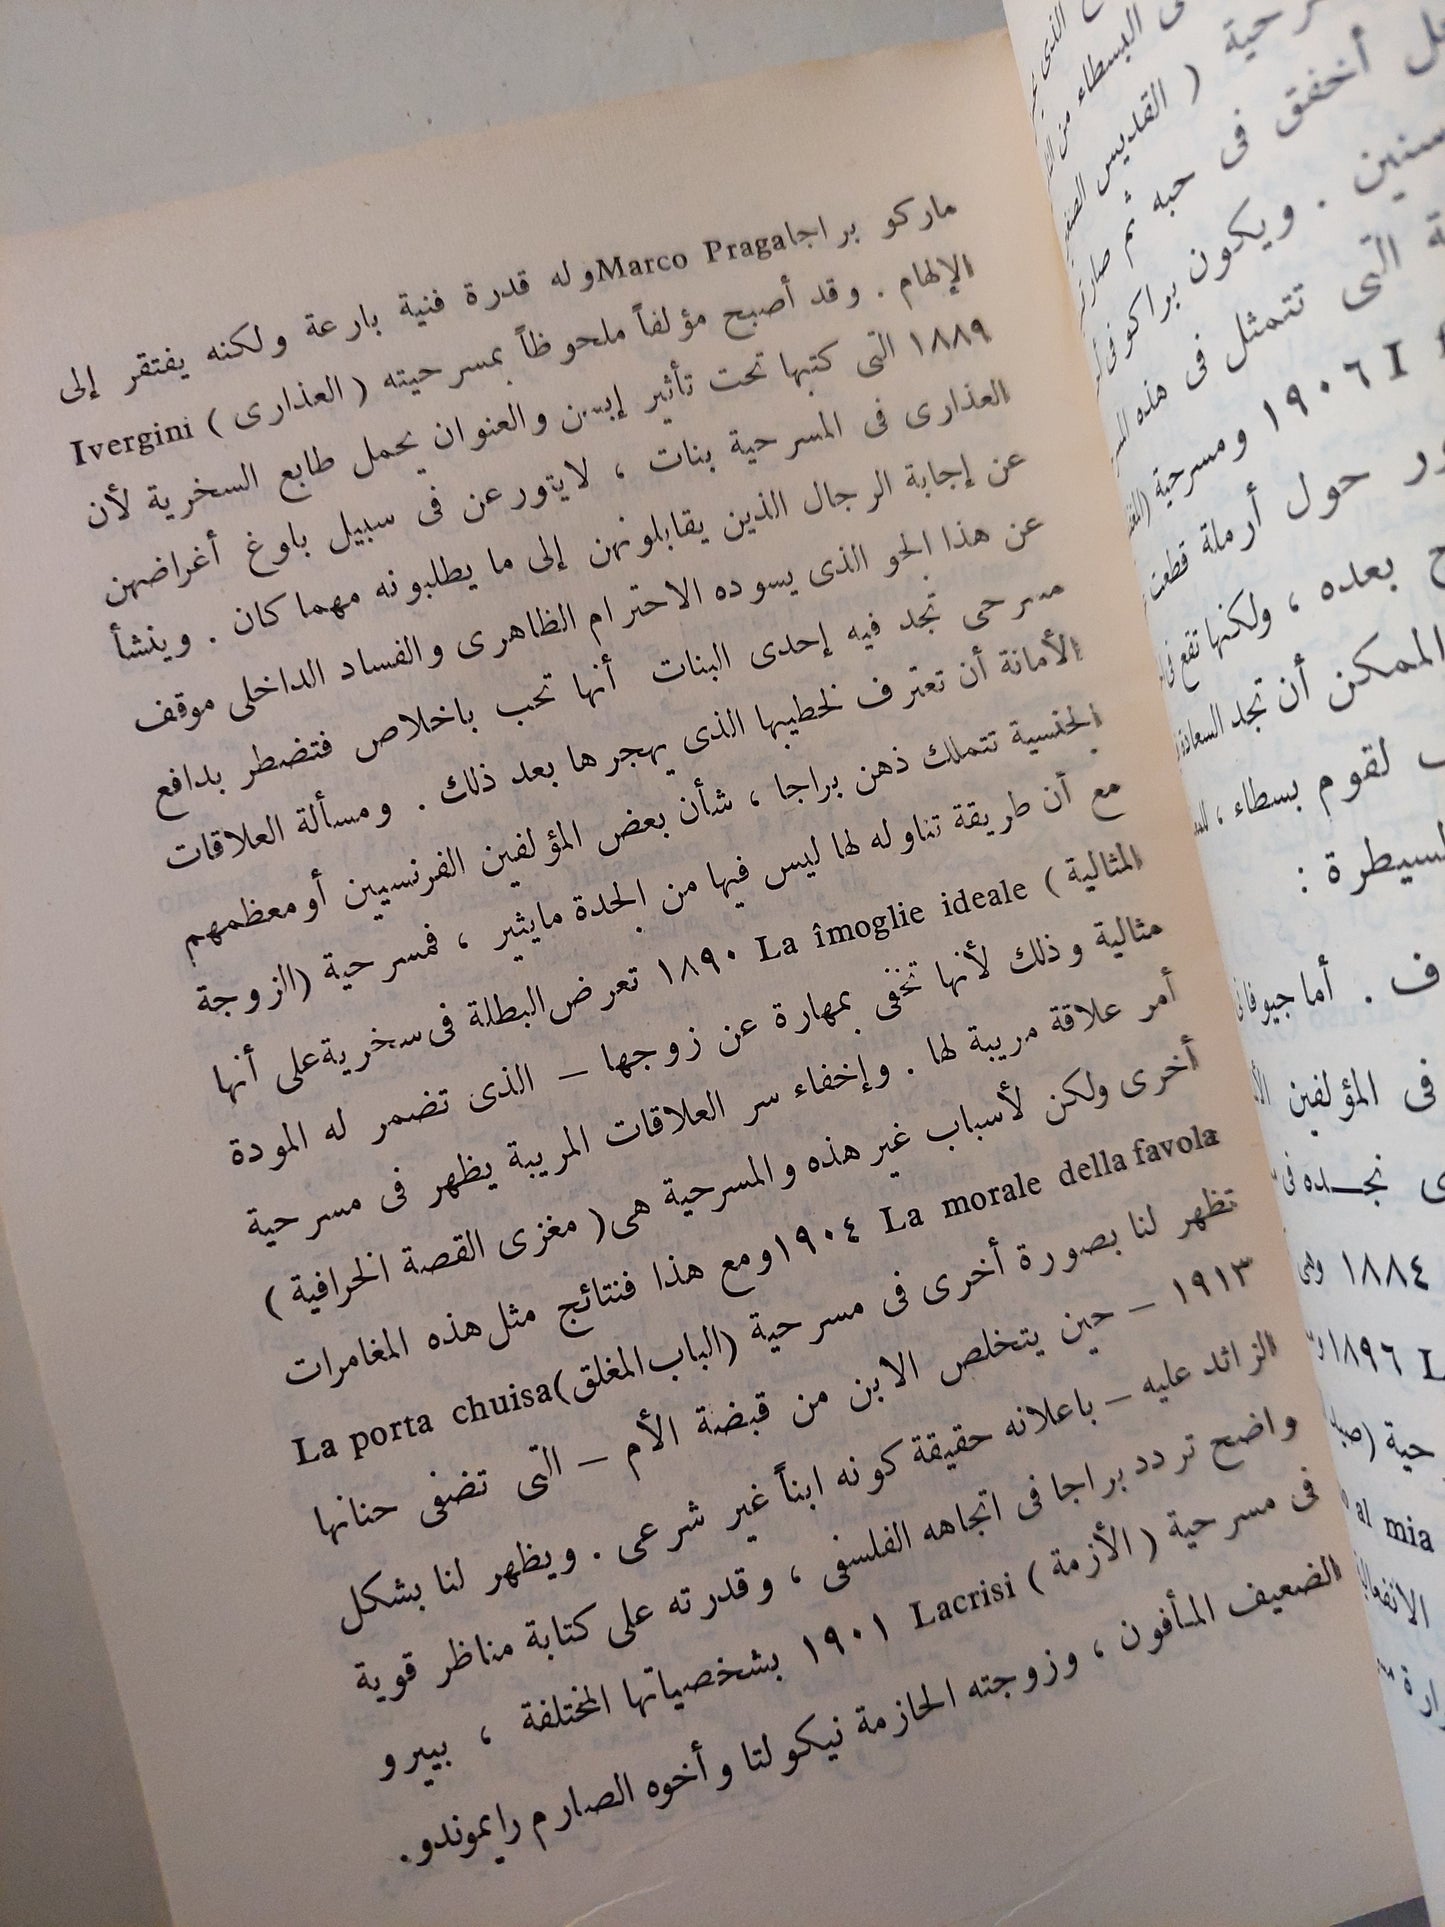 ماركو براجا Marco Praga وله قدرة فنية بارعة ولكنه يفتقر إلى
الإلهام . وقد أصبح مؤلفاً ملحوظاً بمسرحيته ( العذارى ) Ivergini
١٨٨٩ التى كتبها تحت تأثير إبسن والعنوان يحمل طابع السخرية لأن
العذارى فى المسرحية بنات ، لايتورعن فى سبيل بلوغ أغراضهن
عن إجابة الرجال الذين يقابلونهن إلى ما يطلبونه مهما كان . وينشأ
عن هذا الجو الذى يسوده الاحترام الظاهرى والفساد الداخلى موقف
مسرحى تجد فيه إحدى البنات أنها تحب باخلاص فتضطر بدافع
الأمانة أن تعترف لخطيبها الذى يهجرها بعد ذلك . ومسألة العلاقات
الجنسية تتملك ذهن براجا ، شأن بعض المؤلفين الفرنسيين أومعظمهم
مع أن طريقة تناوله لها ليس فيها من الجدة مايثير ، فمسرحية (الزوجة
المثالية ) La îmoglie ideale ١٨٩٠ تعرض البطلة فى سخرية على أنها
مثالية وذلك لأنها تخفى بمهارة عن زوجها – الذى تضمر له المودة
أمر علاقة مريبة لها . وإخفاء سر العلاقات المريبة يظهر فى مسرحية
أخرى ولكن لأسباب غير هذه والمسرحية هى ( مغزى القصة الخرافية )
La morale della favola ١٩٠٤ ومع هذا فنتائج مثل هذه المغامرات
تظهر لنا بصورة أخرى فى مسرحية (الباب المغلق) La porta chuisa
١٩١٣ – حين يتخلص الابن من قبضة الأم – التى تضفى حنانها
الزائد عليه – باعلانه حقيقة كونه ابناً غير شرعى . ويظهر لنا بشكل
واضح تردد براجا فى اتجاهه الفلسفى ، وقدرته على كتابة مناظر قوية
فى مسرحية ( الأزمة ) Lacrisi ١٩٠١ بشخصياتها المختلفة ، بييرو
الضعيف المأفون ، وزوجته الحازمة نيكولتا وأخوه الصارم رايموندو.
البسطاء من
رحية ( القديس
أخفق فى حبه ثم
سنين . ويكون براكو فى
التى تتمثل فى هذه
١٩٠٦ I ومسرحية
حول أرملة قطعت
بعده ، ولكنها تقع فى
الممكن أن تجد السعادة
لقوم بسطاء ،
لسيطرة :
ف . أما جيوفانى
فى المؤلفين
نجـــده فى
١٨٨٤
١٨٩٦ L
حية
al mia